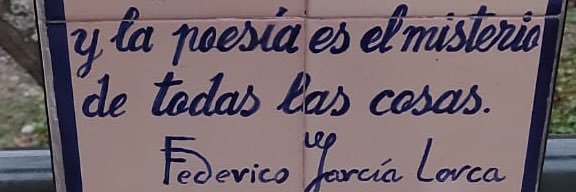 y la poesía es el misterio
de todas las cosas.
Federico García Lorca